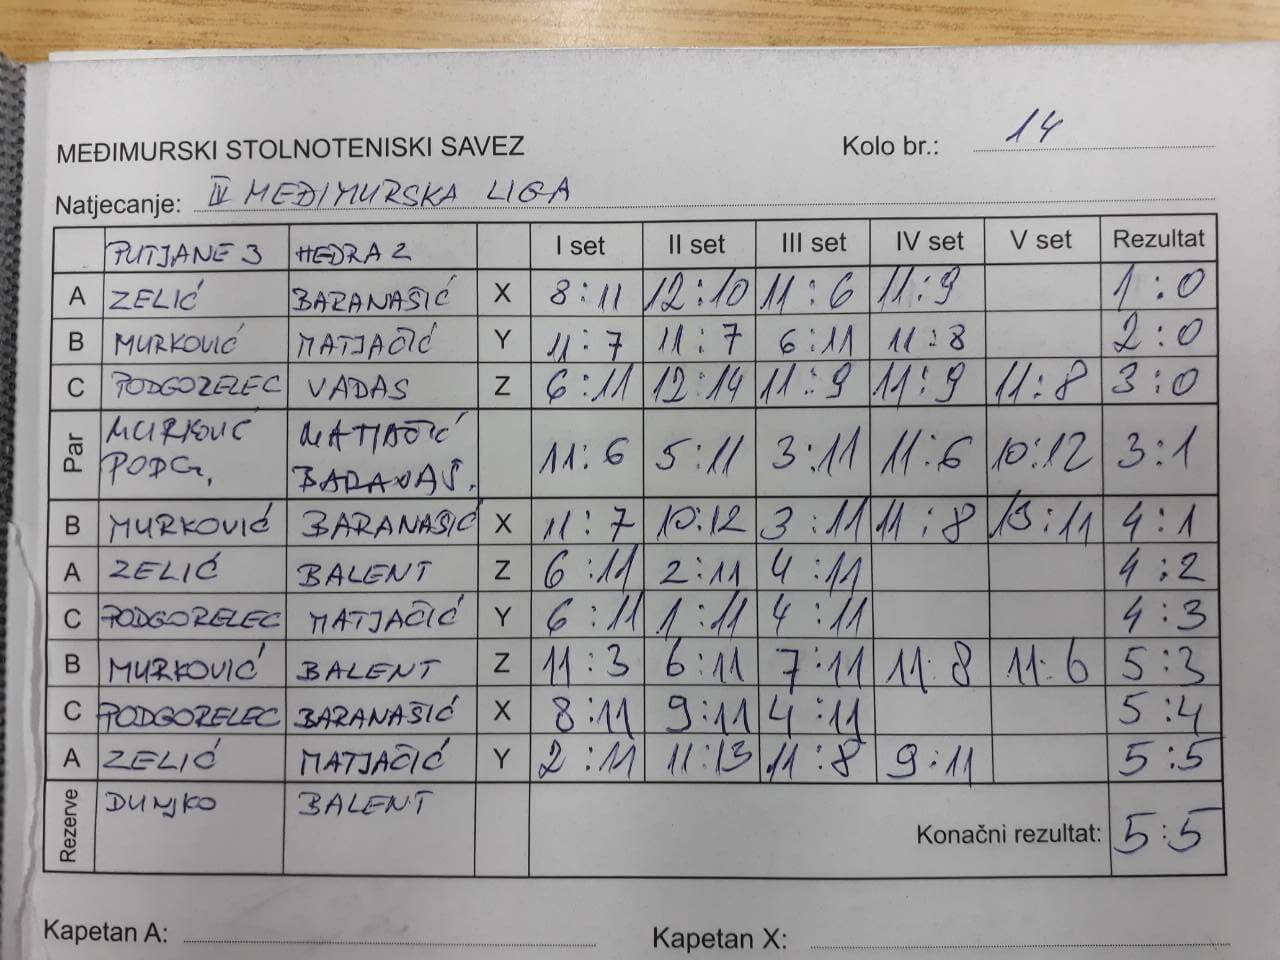 MEĐIMURSKI STOLNOTENISKI SAVEZ Kolo br.: 14
Natjecanje: IV MEĐIMURSKA LIGA
PUTJANE 3 HEDRA 2 I set II set III set IV set V set Rezultat
A ZELIĆ BARANAŠIĆ X 8:11 12:10 11:6 11:9 1:0
B MURKOVIĆ MATJAČIĆ Y 11:7 11:7 6:11 11:8 2:0
C PODGORELEC VADAS Z 6:11 12:14 11:9 11:9 11:8 3:0
Par MURKOVIĆ PODG. MATJAČIĆ BARANAŠ. 11:6 5:11 3:11 11:6 10:12 3:1
B MURKOVIĆ BARANAŠIĆ X 11:7 10:12 3:11 11:8 13:11 4:1
A ZELIĆ BALENT Z 6:11 2:11 4:11 4:2
C PODGORELEC MATJAČIĆ Y 6:11 1:11 4:11 4:3
B MURKOVIĆ BALENT Z 11:3 6:11 7:11 11:8 11:6 5:3
C PODGORELEC BARANAŠIĆ X 8:11 9:11 4:11 5:4
A ZELIĆ MATJAČIĆ Y 2:11 11:13 11:8 9:11 5:5
Rezerve DUNJKO BALENT Konačni rezultat: 5:5
Kapetan A: Kapetan X: